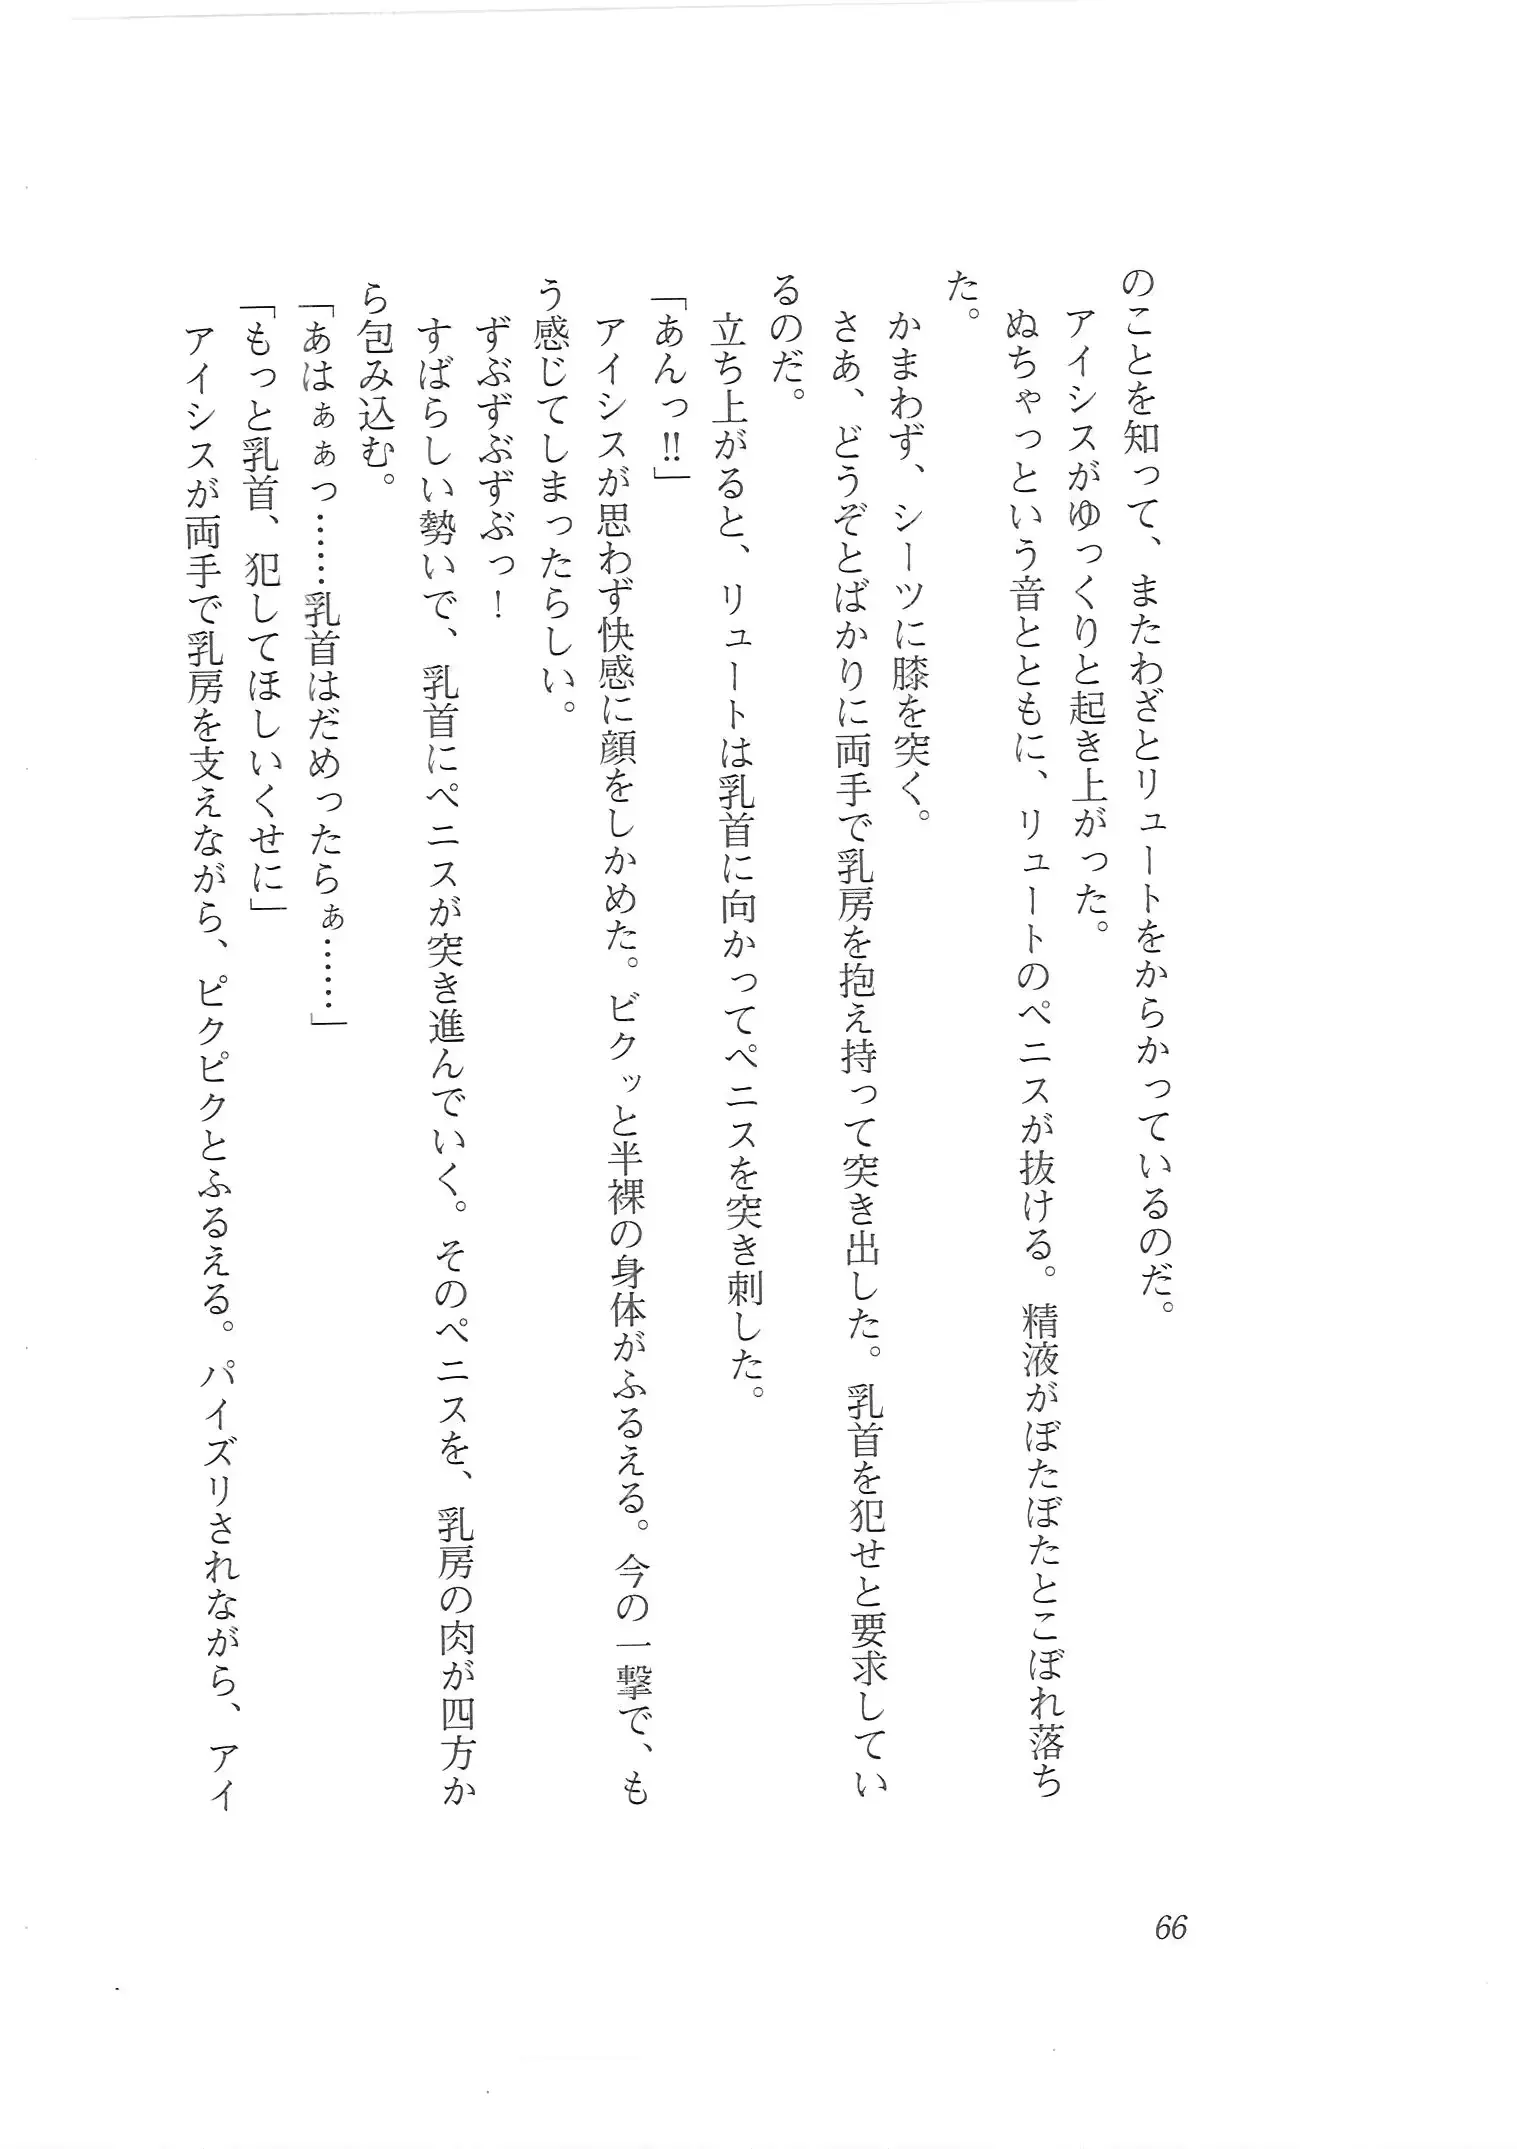 のことを知って、またわざとリュートをからかっているのだ。
アイシスがゆっくりと起き上がった。
ぬちゃっという音とともに、リュートのペニスが抜ける。精液がぼたぼたとこぼれ落ち
た。
かまわず、シーツに膝を突く。
さあ、どうぞとばかりに両手で乳房を抱え持って突き出した。乳首を犯せと要求してい
るのだ。
立ち上がると、リュートは乳首に向かってペニスを突き刺した。
「あんっ!!」
アイシスが思わず快感に顔をしかめた。ビクッと半裸の身体がふるえる。今の一撃で、も
う感じてしまったらしい。
ずぶずぶずぶっ！
すばらしい勢いで、乳首にペニスが突き進んでいく。そのペニスを、乳房の肉が四方か
ら包み込む。
「あはぁぁっ……乳首はだめったらぁ……」
「もっと乳首、犯してほしいくせに」
アイシスが両手で乳房を支えながら、ピクピクとふるえる。パイズリされながら、アイ
66